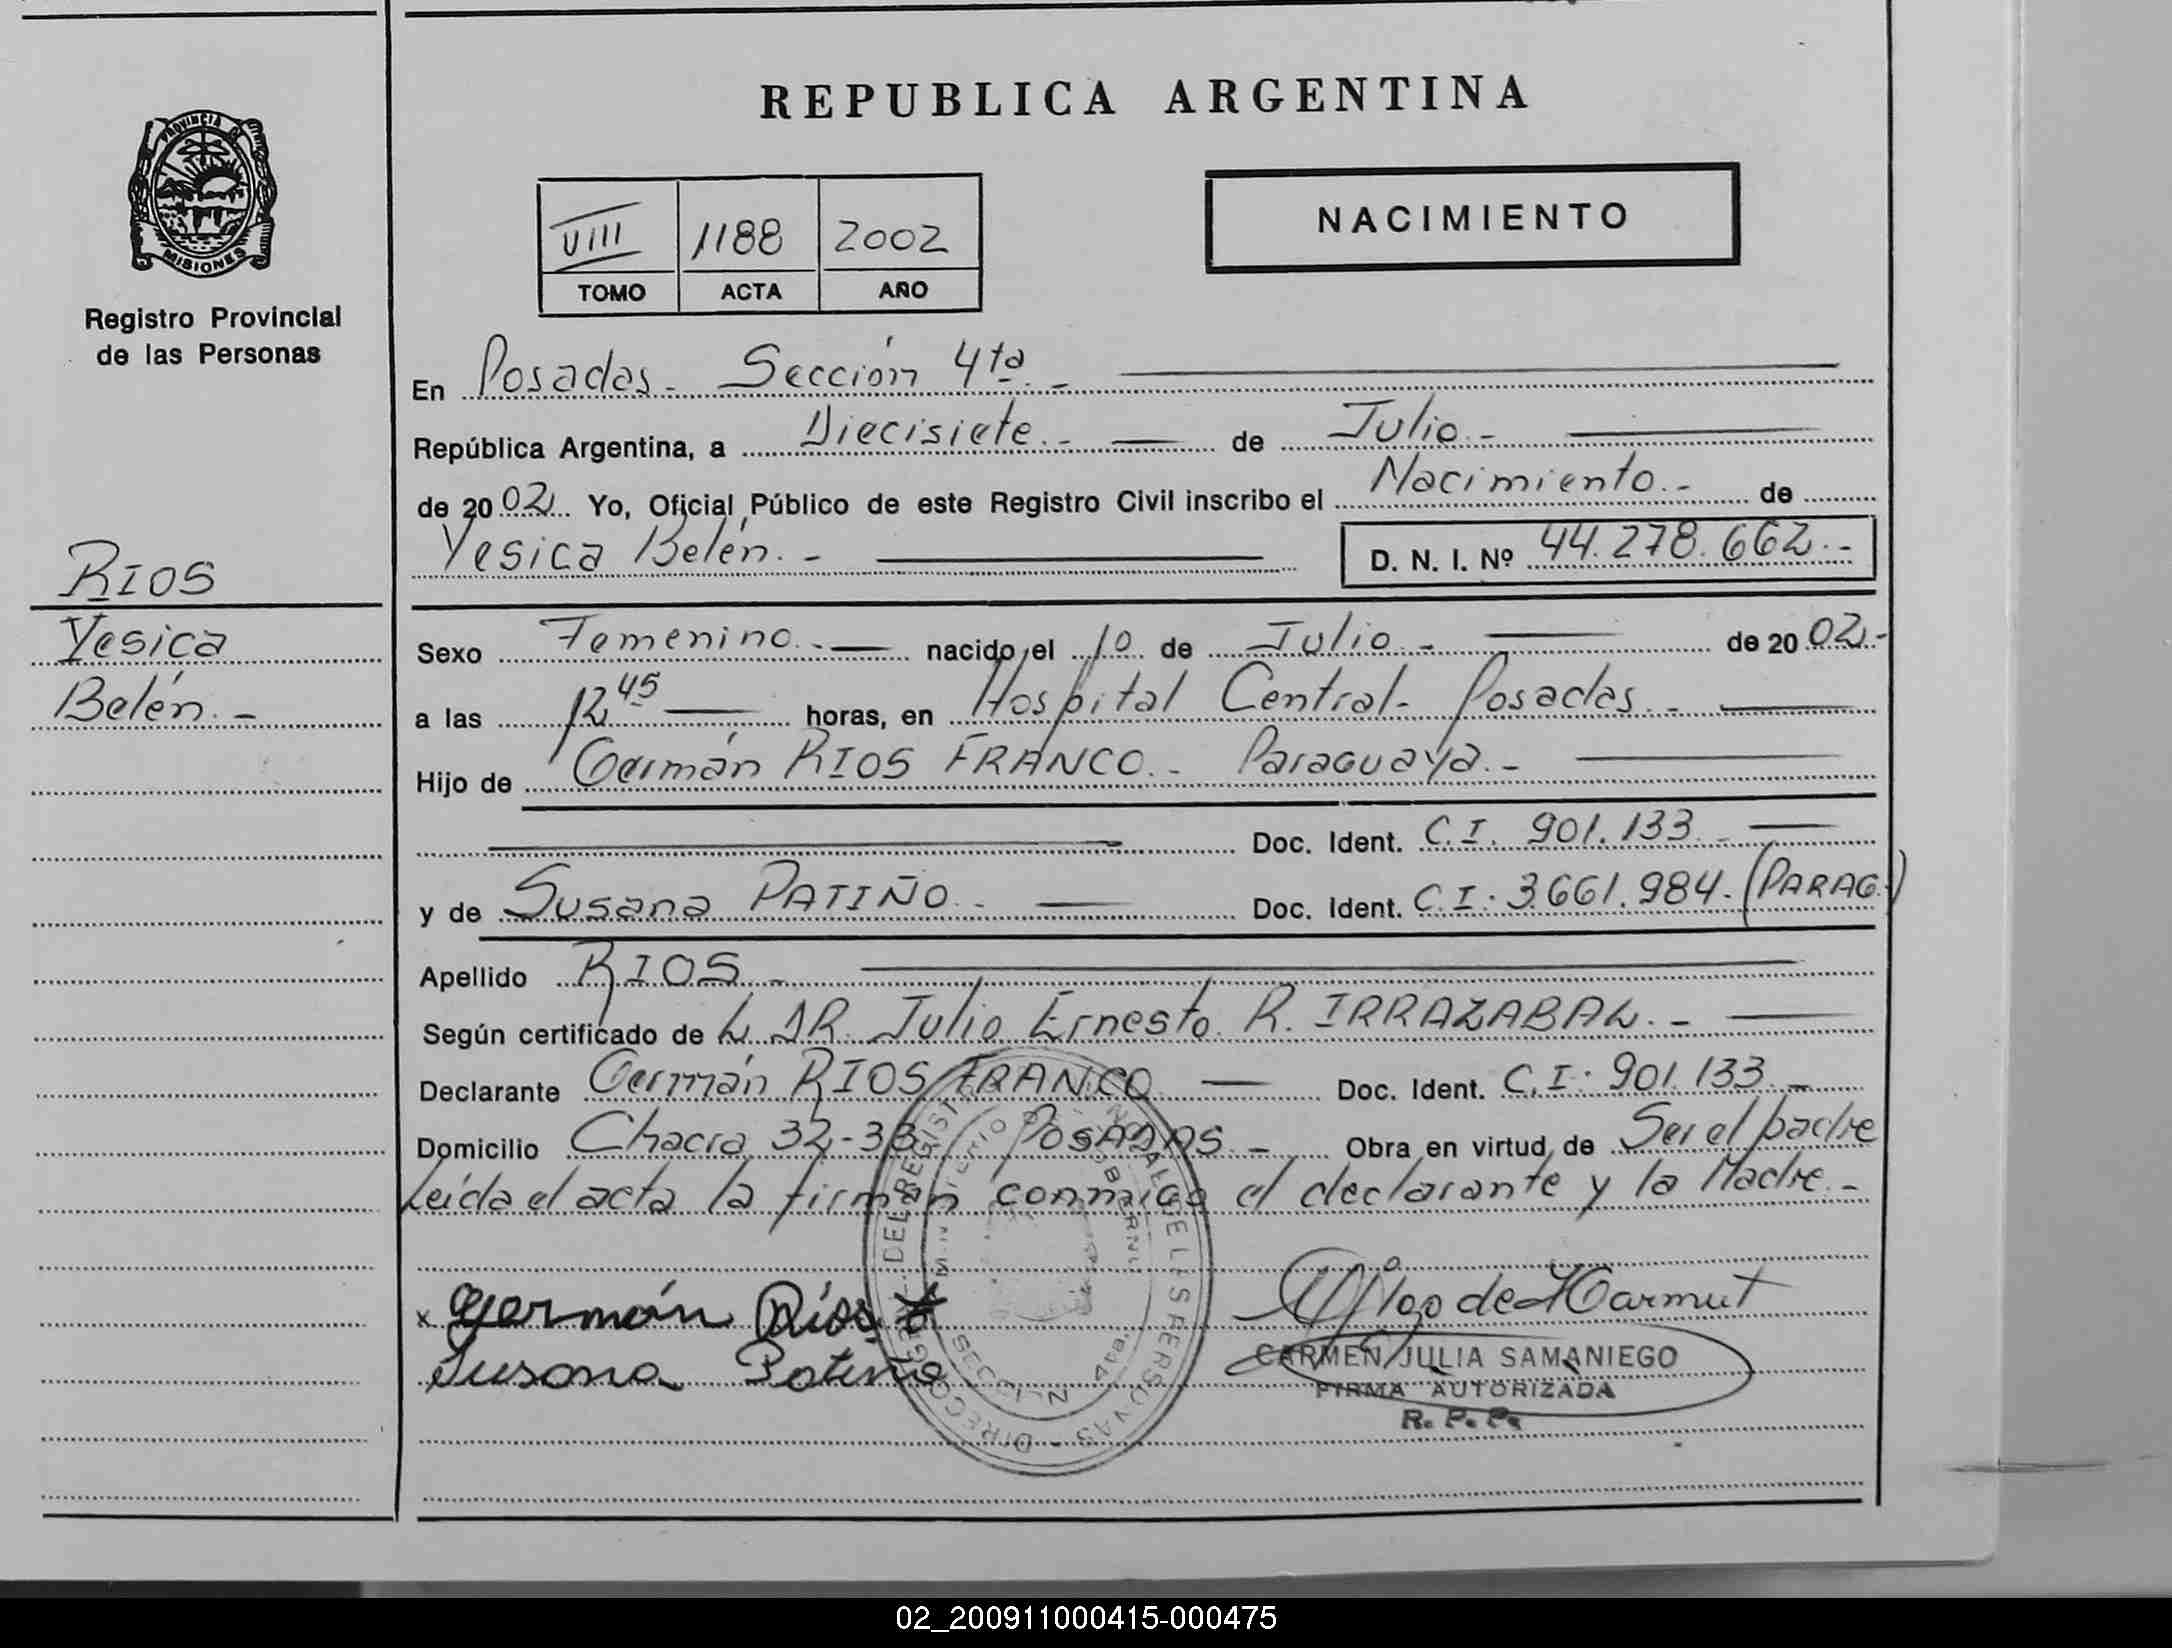 REPUBLICA ARGENTINA
PROVINCIA DE
MISIONES
Registro Provincial
de las Personas
VIII 1188 2002
TOMO ACTA AÑO
NACIMIENTO
RIOS
Yesica
Belén.-
En Posadas.- Sección 4ta.-
República Argentina, a Diecisiete.- de Julio.-
de 2002 Yo, Oficial Público de este Registro Civil inscribo el Nacimiento.- de
Yesica Belén.- D. N. I. Nº 44.278.662.-
Sexo Femenino.- nacido el 10 de Julio.- de 2002.-
a las 12 45 horas, en Hospital Central- Posadas.-
Hijo de Germán RIOS FRANCO.- Paraguaya.-
Doc. Ident. C.I. 901.133.-
y de Susana PATIÑO.- Doc. Ident. C.I. 3.661.984.- (PARAG.)
Apellido RIOS.-
Según certificado de L DR. Julio Ernesto R. IRRAZABAL.-
Declarante Germán RIOS FRANCO Doc. Ident. C.I. 901.133.-
Domicilio Chacra 32-33 POSADAS.- Obra en virtud de Ser el padre
Leída el acta la firman conmigo el declarante y la Madre.-
x Germán Ríos F
Susana Patiño
CARMEN JULIA SAMANIEGO
FIRMA AUTORIZADA
R. P. P.
02_200911000415-000475